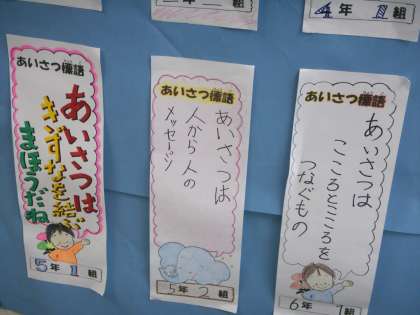 4年 1組
あいさつ標語
あいさつは
きずなを結ぶ
まほうだね
5年 1組
あいさつ標語
あいさつは
人から人の
メッセージ
5年 2組
あいさつ標語
あいさつは
こころとこころを
つなぐもの
6年 1組